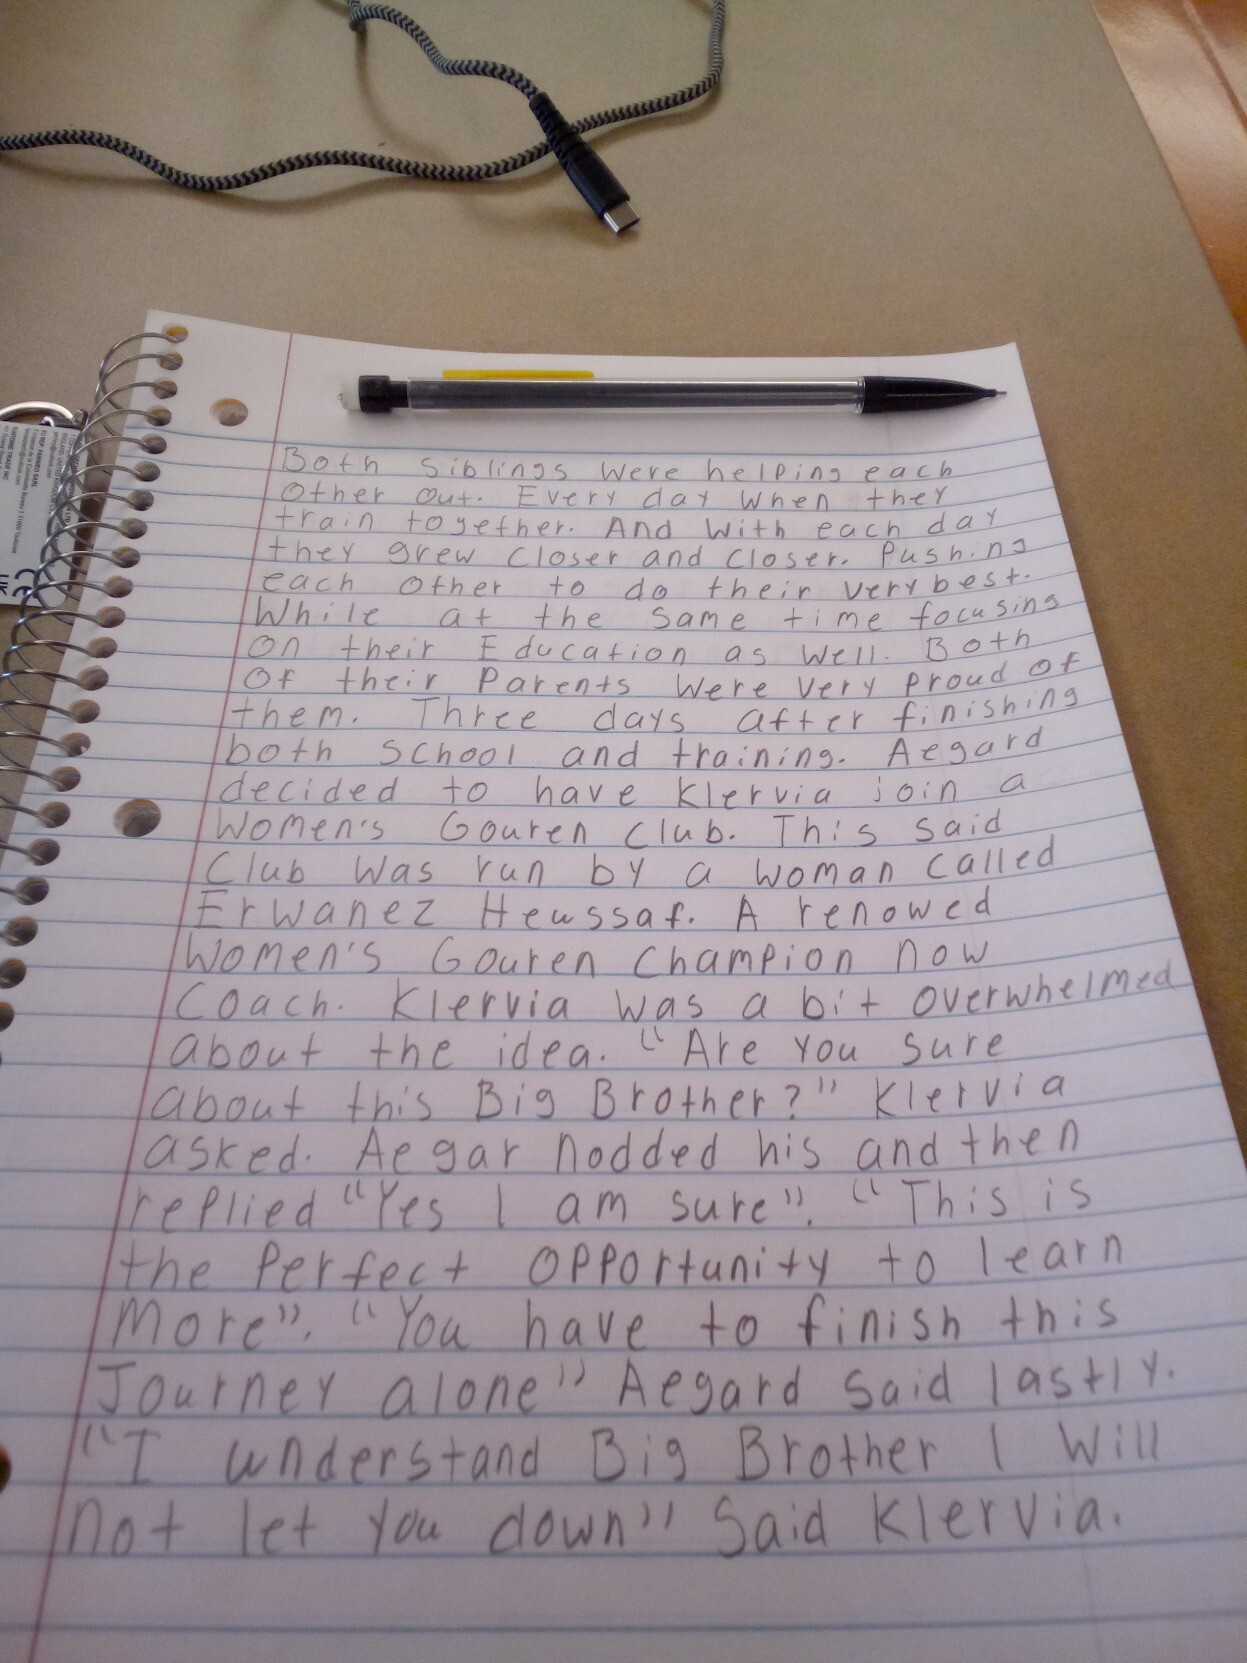 Both siblings were helping each
other out. Every day when they
train together. And with each day
they grew closer and closer. Pushing
each other to do their very best.
While at the same time focusing
on their Education as well. Both
of their Parents were very proud of
them. Three days after finishing
both school and training. Aegard
decided to have Klervia join a
Women's Gouren Club. This said
Club was run by a woman called
Erwanez Heussaf. A renowed
Women's Gouren Champion now
Coach. Klervia was a bit overwhelmed
about the idea. "Are you sure
about this Big Brother?" Klervia
asked. Aegar nodded his and then
replied "Yes I am sure". "This is
the perfect opportunity to learn
more". "You have to finish this
Journey alone" Aegard said lastly.
"I understand Big Brother I will
not let you down" Said Klervia.